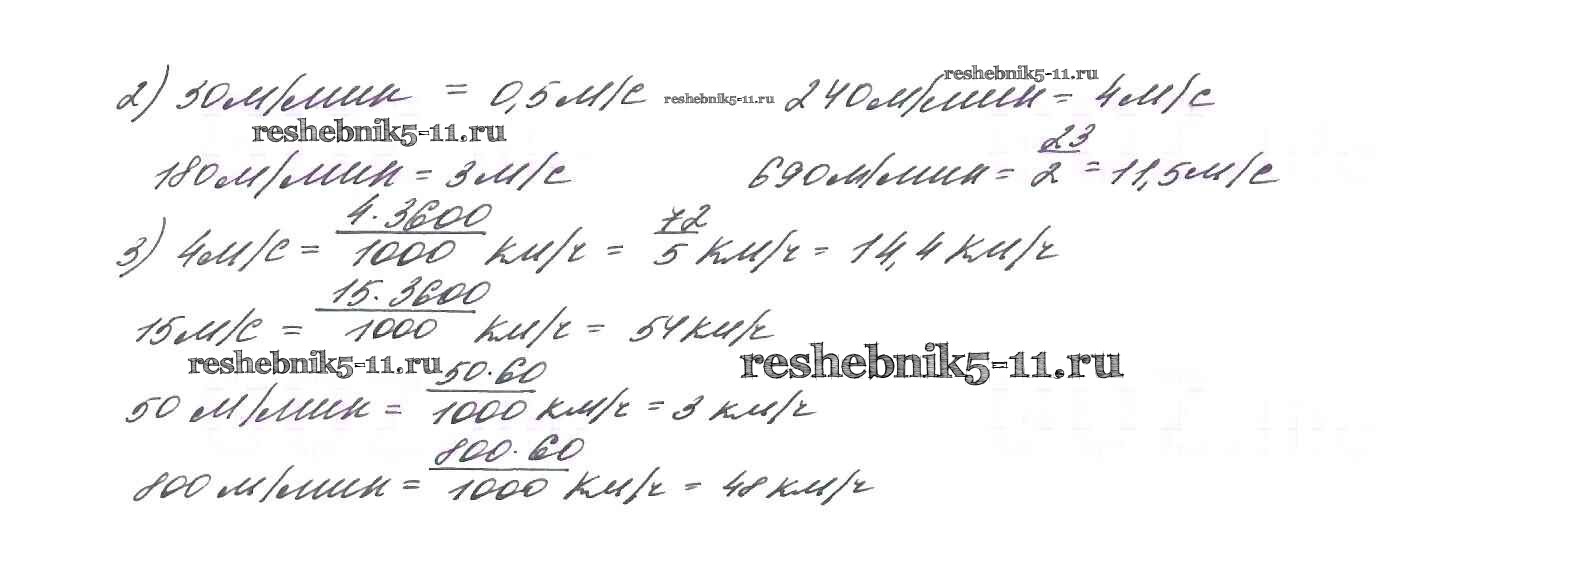 reshebnik5-11.ru
2) 30м/мин = 0,5м/с reshebnik5-11.ru 240м/мин = 4м/с
reshebnik5-11.ru
180м/мин = 3м/с 690м/мин = 23/2 = 11,5м/с
3) 4м/с = 4·3600/1000 км/ч = 72/5 км/ч = 14,4 км/ч
15м/с = 15·3600/1000 км/ч = 54км/ч
reshebnik5-11.ru reshebnik5-11.ru
50 м/мин = 50·60/1000 км/ч = 3 км/ч
800 м/мин = 800·60/1000 км/ч = 48 км/ч